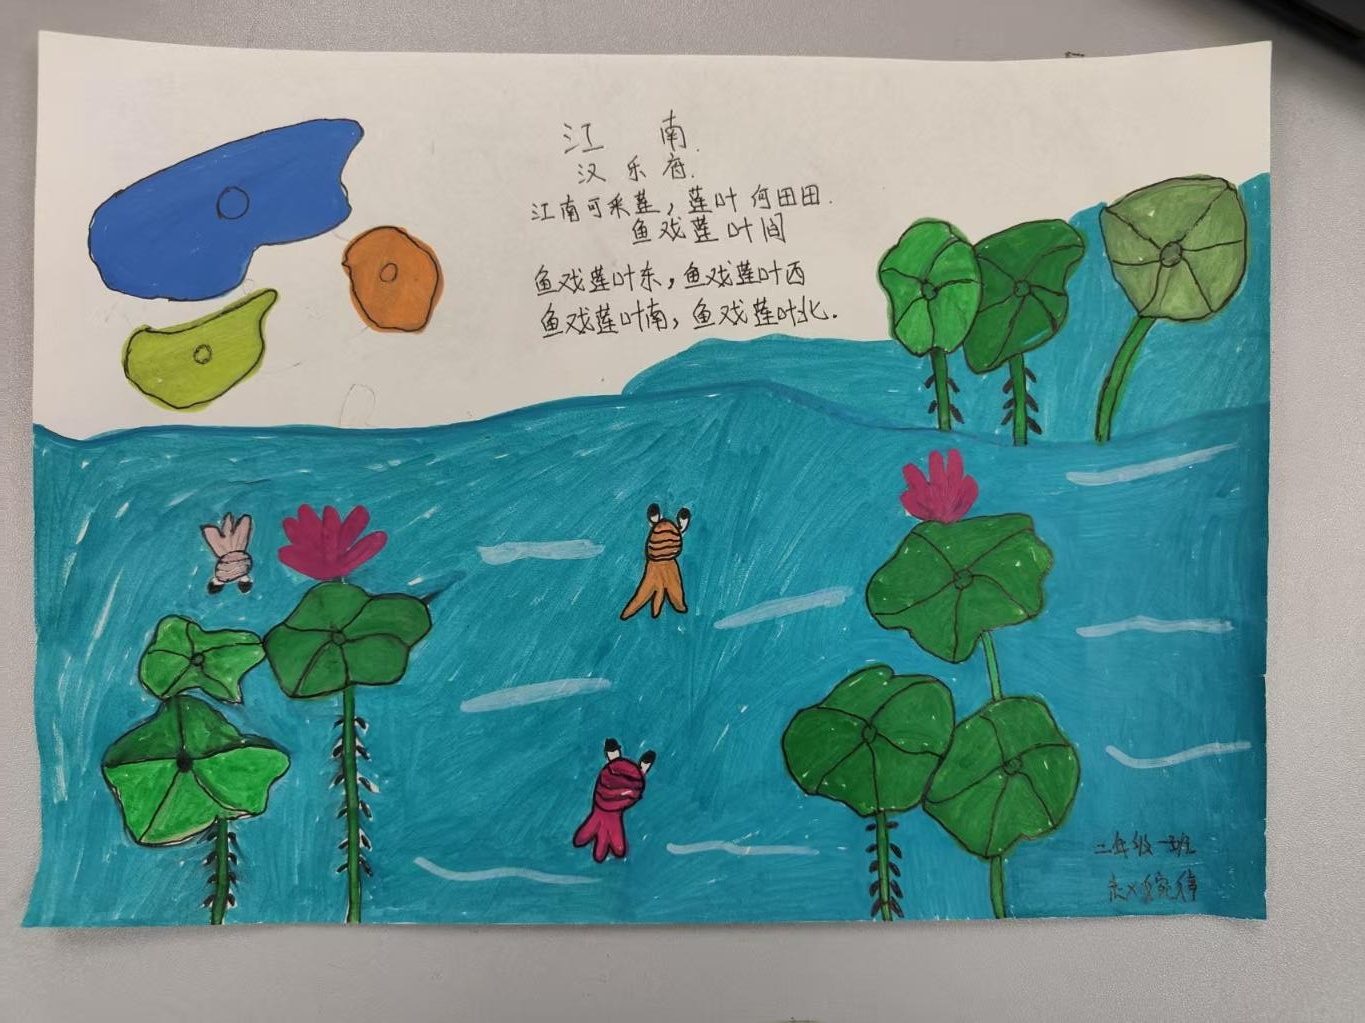 江南.
汉乐府.
江南可采莲，莲叶何田田.
鱼戏莲叶间
鱼戏莲叶东，鱼戏莲叶西
鱼戏莲叶南，鱼戏莲叶北.
二年级一班